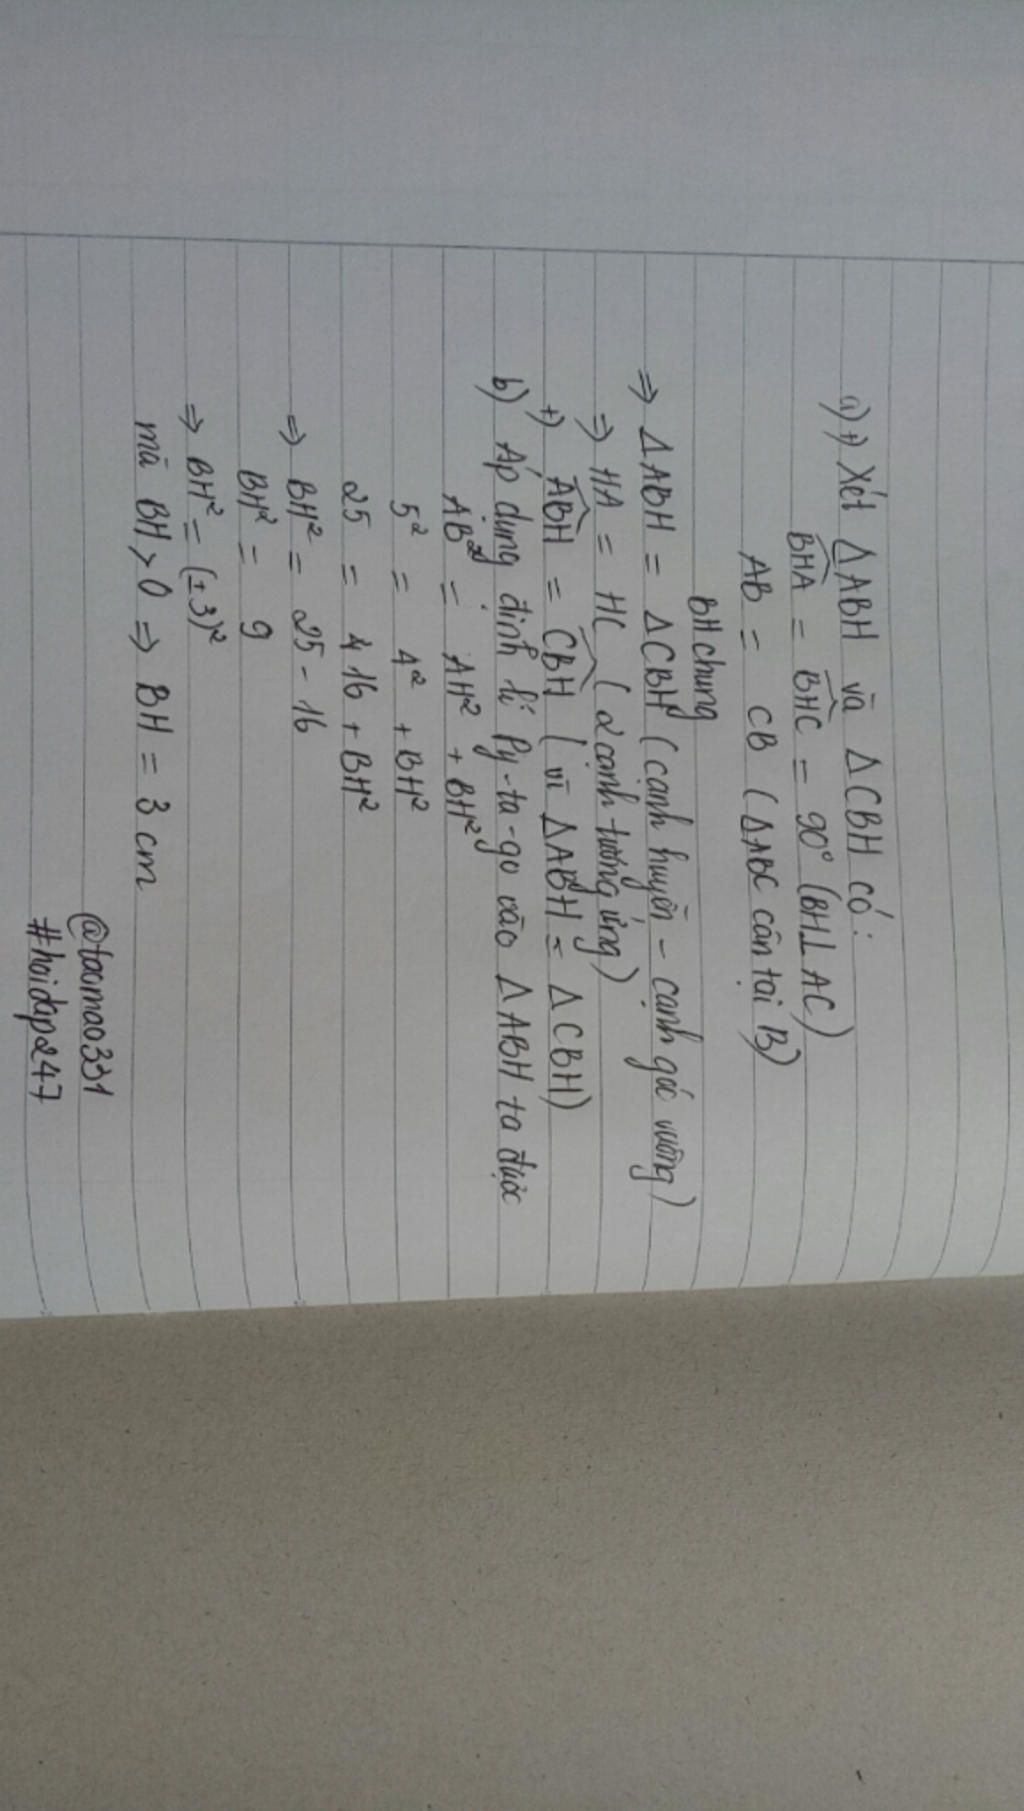 a) +) Xét ΔABH và ΔCBH có:
BHA = BHC = 90° (BH⊥AC)
AB = CB (ΔABC cân tại B)
BH chung
=> ΔABH = ΔCBH (cạnh huyền - cạnh góc vuông)
=> HA = HC (2 cạnh tương ứng)
+) ABH = CBH (vì ΔABH = ΔCBH)
b) Áp dụng định lí Py-ta-go vào ΔABH ta được
AB² = AH² + BH²
5² = 4² + BH²
25 = 16 + BH²
=> BH² = 25 - 16
BH² = 9
=> BH² = (±3)²
mà BH > 0 => BH = 3 cm
@taomao331
#hoidap247